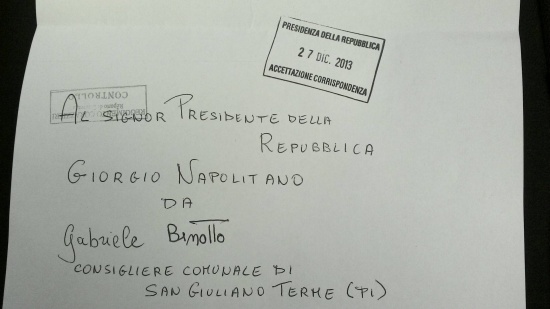 PRESIDENZA DELLA REPUBBLICA
27 DIC. 2013
ACCETTAZIONE CORRISPONDENZA
AL SIGNOR PRESIDENTE DELLA
REPUBBLICA
GIORGIO NAPOLITANO
DA
Gabriele Binotto
CONSIGLIERE COMUNALE DI
SAN GIULIANO TERME (PI)